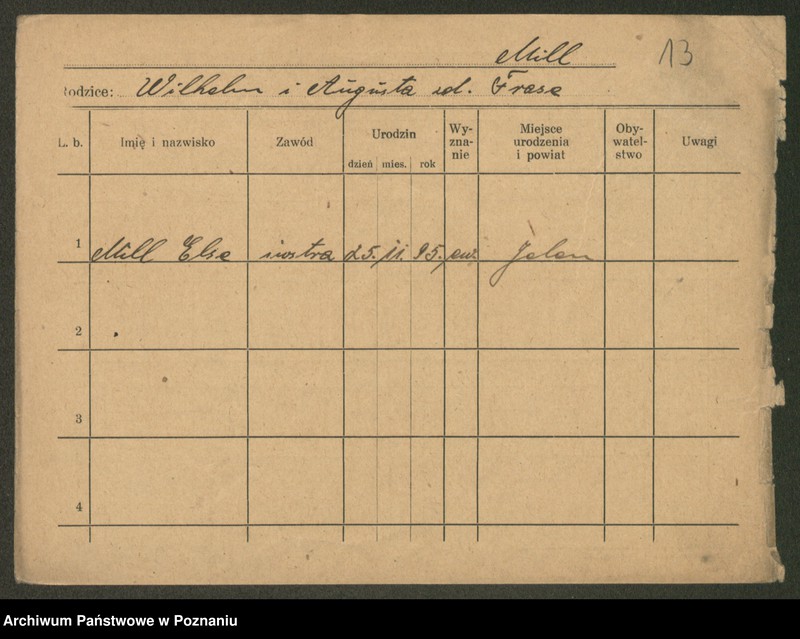 Mill 13
Rodzice: Wilhelm i Augusta zd. Frase
L. b. Imię i nazwisko Zawód Urodzin dzień mies. rok Wy-zna-nie Miejsce urodzenia i powiat Oby-watel-stwo Uwagi
1 Mill Else siostra 25. 11. 95. ew.
2
3
4
Archiwum Państwowe w Poznaniu